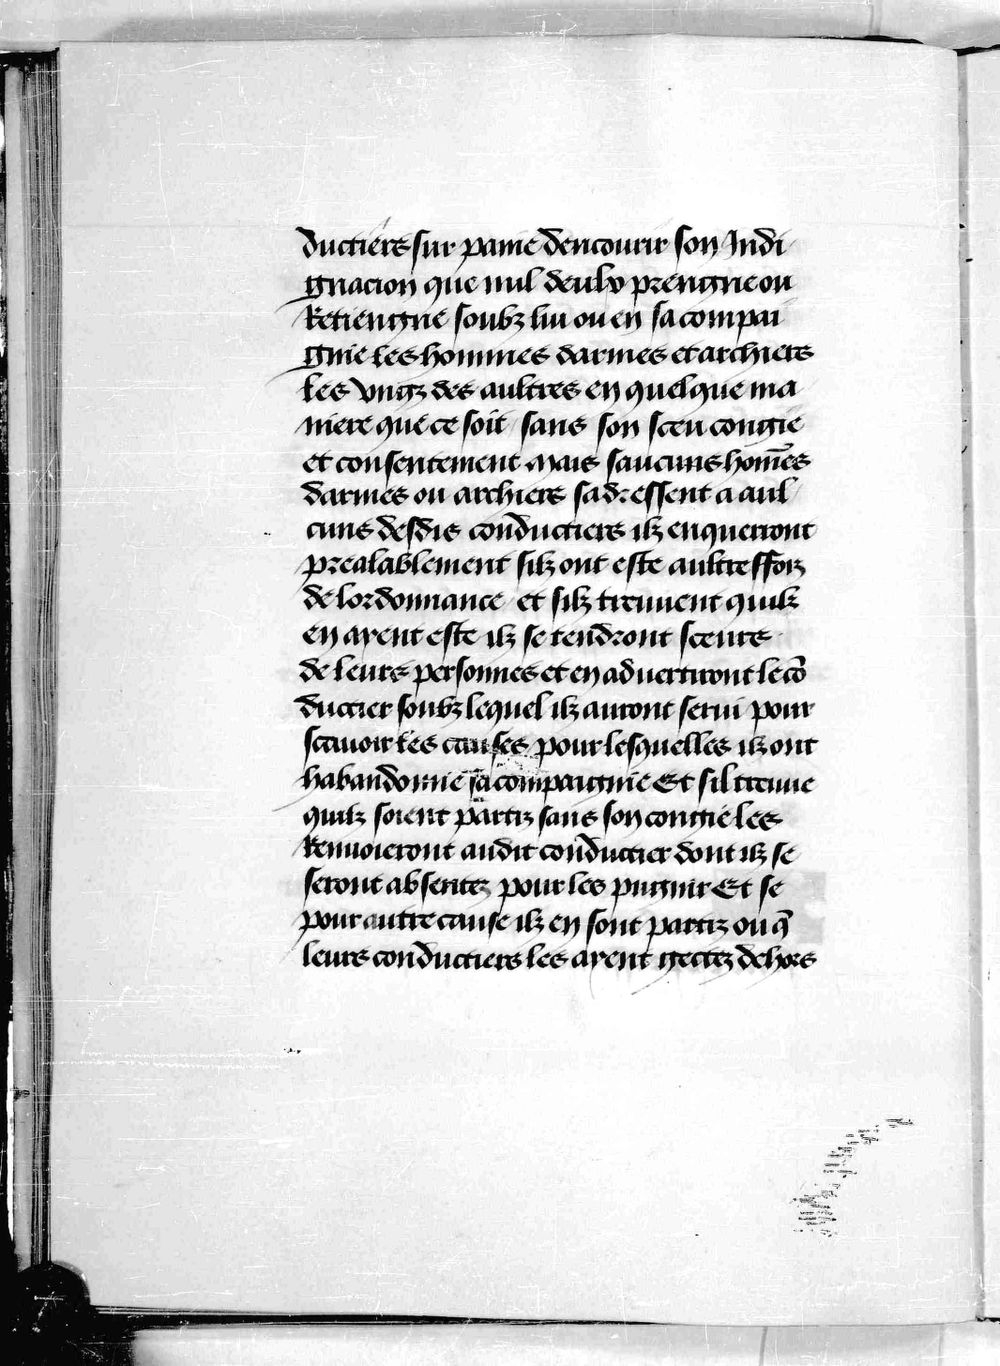 ductiers sur paine dencourir son Indi
gnacion que nul deulx prengne ou
Retiengne soubz lui ou en sa compai
gnie les hommes darmes et archiers
les Vngz des aultres en quelque ma
niere que ce soit sans son sceu congie
et consentement Mais saucuns hom̄es
darmes ou archiers sadressent a aul
cuns desdis conductiers ilz enquerront
prealablement silz ont este aultreffois
de lordonnance et silz treuuent quilz
en ayent este ilz se tendront sceurs
de leurs personnes et en aduertiront le cō
ductier soubz lequel ilz auront serui pour
scauoir les causes pour lesquelles ilz ont
habandonne sa compaignie Et sil treuue
quilz soient partiz sans son congie les
Renuoieront audit conductier dont ilz se
seront absentez pour les pugnir Et se
pour autre cause ilz en sont partiz ou q̄
leurs conductiers les ayent gectez dehors